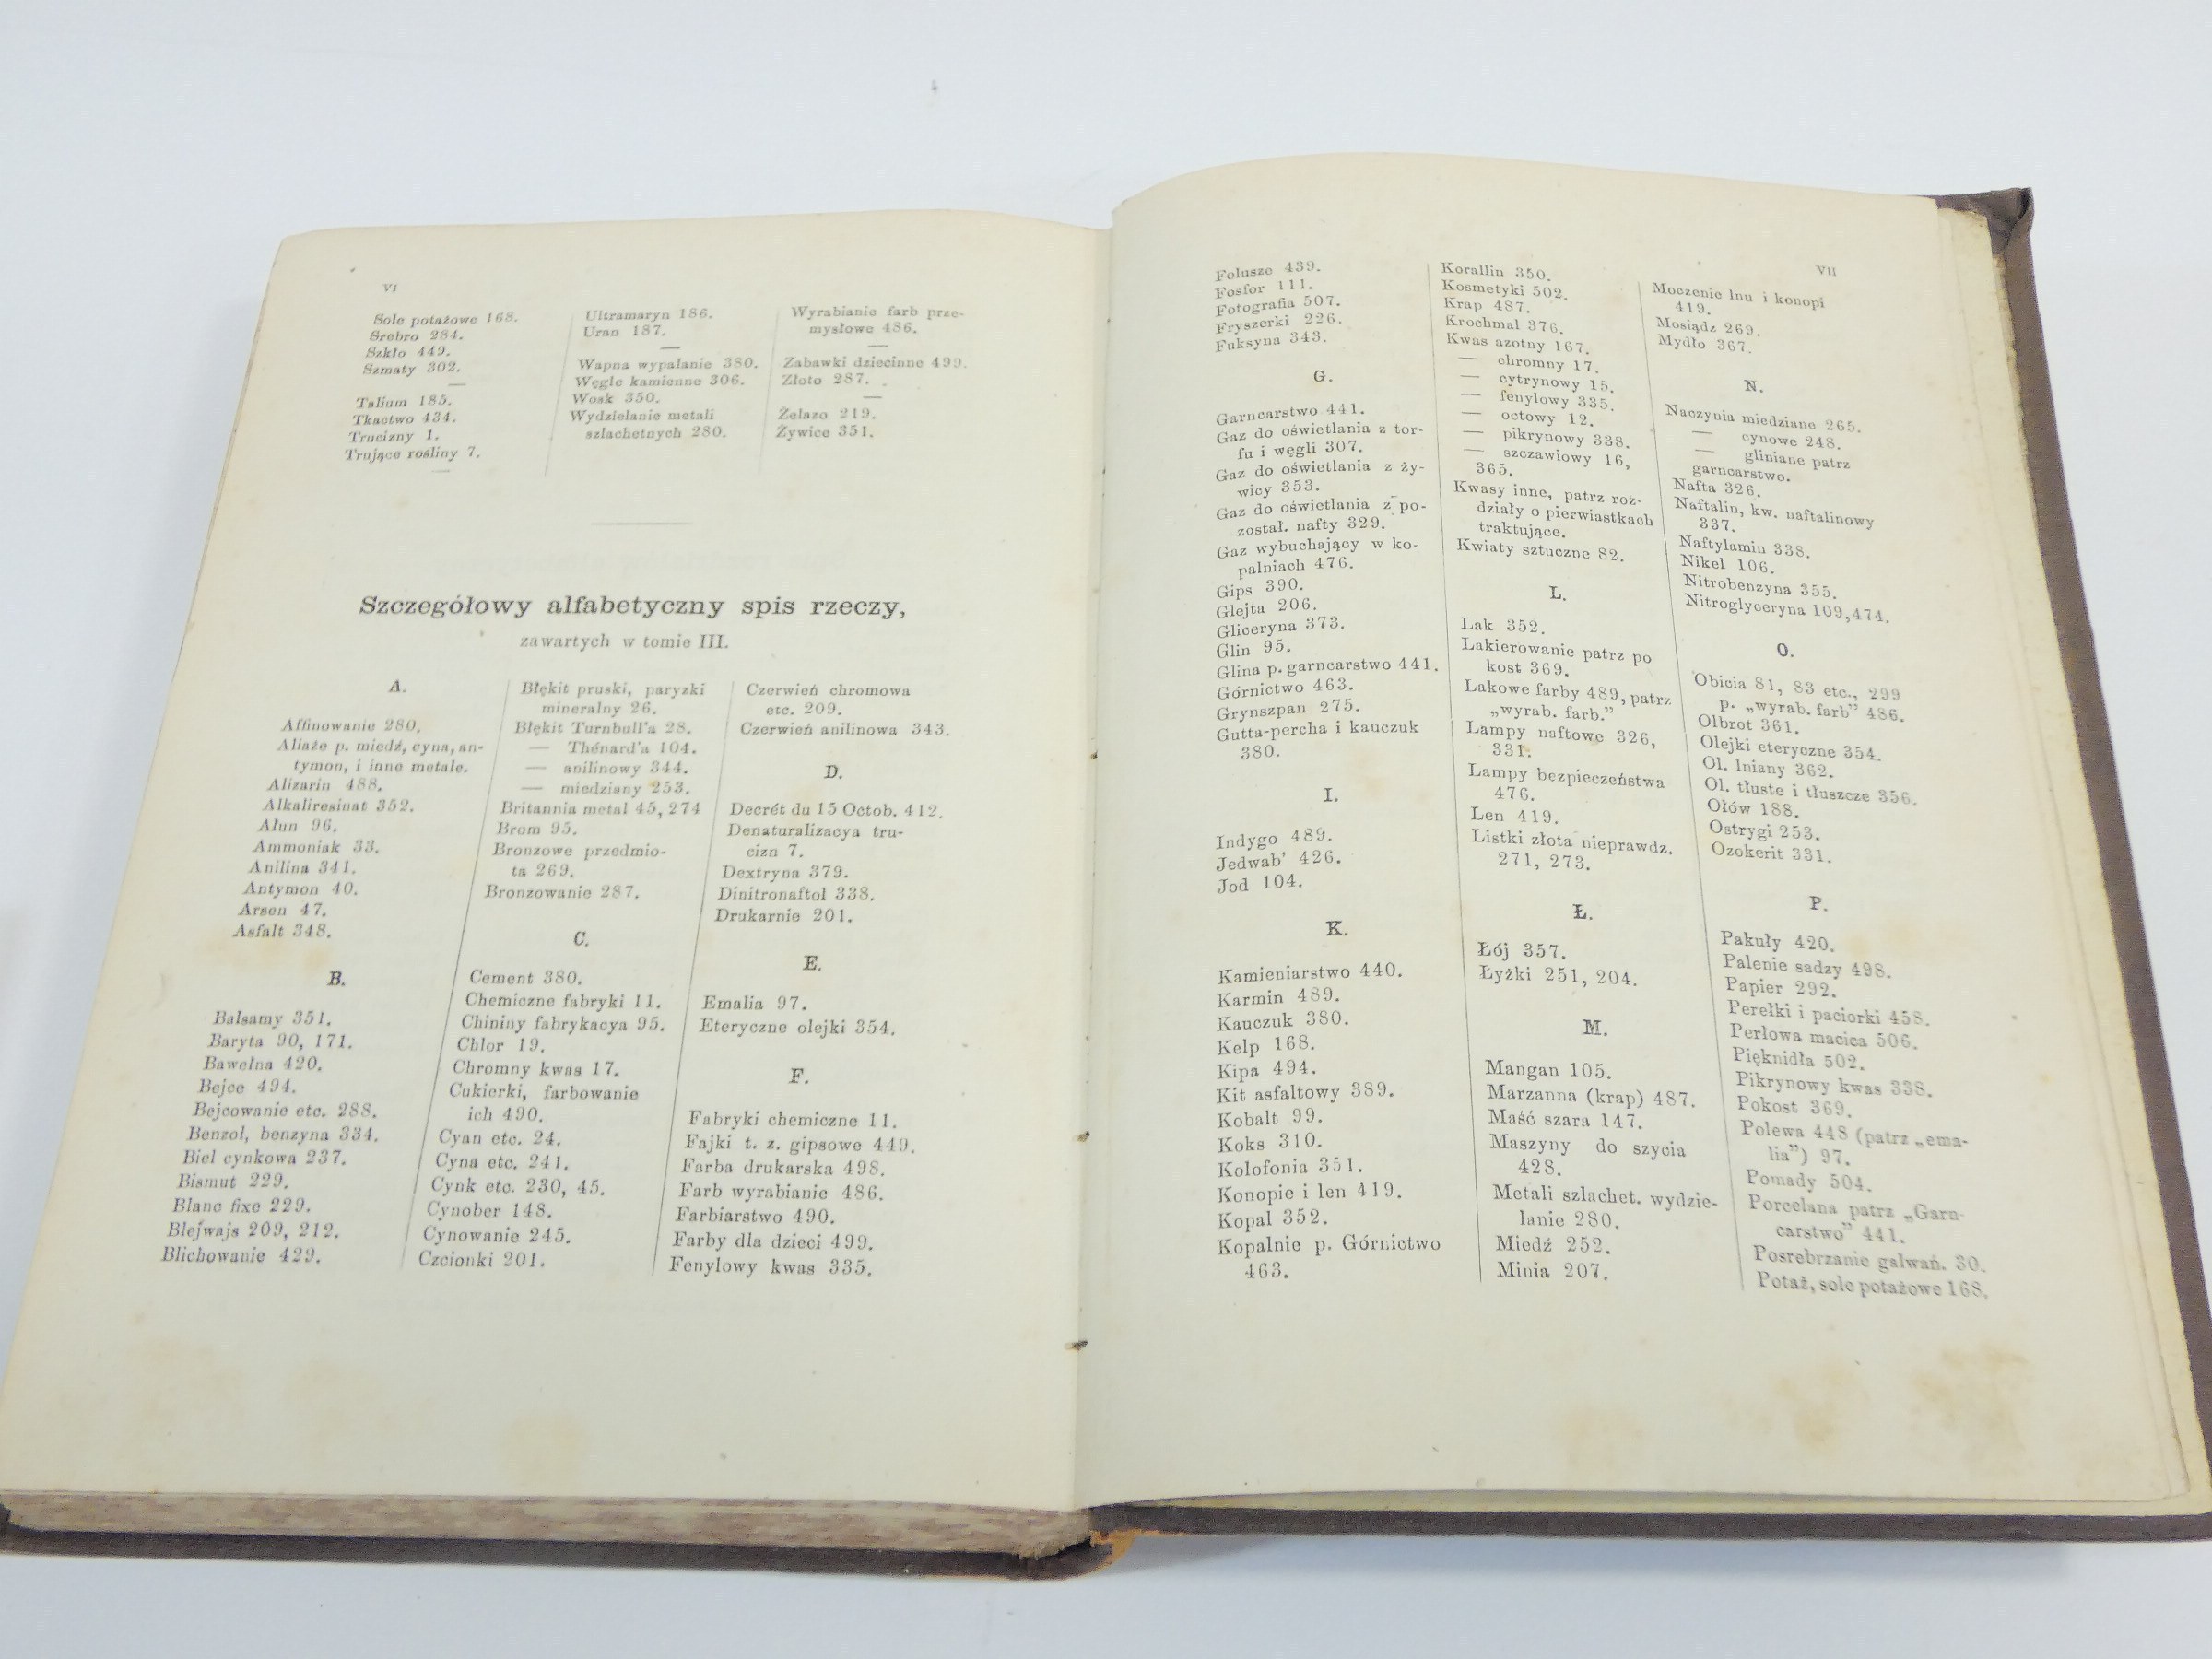 VI
Sole potażowe 168.
Srebro 284.
Szkło 449.
Szmaty 302.
—
Talium 185.
Tkactwo 434.
Trucizny 1.
Trujące rośliny 7.
—
Ultramaryn 186.
Uran 187.
—
Wapna wypalanie 380.
Węgle kamienne 306.
Wosk 350.
Wydzielanie metali
szlachetnych 280.
Wyrabianie farb prze-
mysłowe 486.
—
Zabawki dziecinne 499.
Złoto 287.
—
Żelazo 219.
Żywice 351.
Szczegółowy alfabetyczny spis rzeczy,
zawartych w tomie III.
A.
Affinowanie 280.
Aliaże p. miedź, cyna, an-
tymon, i inne metale.
Alizarin 488.
Alkaliresinat 352.
Ałun 96.
Ammoniak 33.
Anilina 341.
Antymon 40.
Arsen 47.
Asfalt 348.
B.
Balsamy 351.
Baryta 90, 171.
Bawełna 420.
Bejce 494.
Bejcowanie etc. 288.
Benzol, benzyna 334.
Biel cynkowa 237.
Bismut 229.
Blanc fixe 229.
Blejwajs 209, 212.
Blichowanie 429.
Błękit pruski, paryzki
mineralny 26.
Błękit Turnbull'a 28.
— Thénard'a 104.
— anilinowy 344.
— miedziany 253.
Britannia metal 45, 274
Brom 95.
Bronzowe przedmio-
ta 269.
Bronzowanie 287.
C.
Cement 380.
Chemiczne fabryki 11.
Chininy fabrykacya 95.
Chlor 19.
Chromny kwas 17.
Cukierki, farbowanie
ich 490.
Cyan etc. 24.
Cyna etc. 241.
Cynk etc. 230, 45.
Cynober 148.
Cynowanie 245.
Czcionki 201.
Czerwień chromowa
etc. 209.
Czerwień anilinowa 343.
D.
Decrét du 15 Octob. 412.
Denaturalizacya tru-
cizn 7.
Dextryna 379.
Dinitronaftol 338.
Drukarnie 201.
E.
Emalia 97.
Eteryczne olejki 354.
F.
Fabryki chemiczne 11.
Fajki t. z. gipsowe 449.
Farba drukarska 498.
Farb wyrabianie 486.
Farbiarstwo 490.
Farby dla dzieci 499.
Fenylowy kwas 335.
VII
Folusze 439.
Fosfor 111.
Fotografia 507.
Fryszerki 226.
Fuksyna 343.
G.
Garncarstwo 441.
Gaz do oświetlania z tor-
fu i węgli 307.
Gaz do oświetlania z ży-
wicy 353.
Gaz do oświetlania z po-
został. nafty 329.
Gaz wybuchający w ko-
palniach 476.
Gips 390.
Glejta 206.
Gliceryna 373.
Glin 95.
Glina p. garncarstwo 441.
Górnictwo 463.
Grynszpan 275.
Gutta-percha i kauczuk
380.
I.
Indygo 489.
Jedwab' 426.
Jod 104.
K.
Kamieniarstwo 440.
Karmin 489.
Kauczuk 380.
Kelp 168.
Kipa 494.
Kit asfaltowy 389.
Kobalt 99.
Koks 310.
Kolofonia 351.
Konopie i len 419.
Kopal 352.
Kopalnie p. Górnictwo
463.
Korallin 350.
Kosmetyki 502.
Krap 487.
Krochmal 376.
Kwas azotny 167.
— chromny 17.
— cytrynowy 15.
— fenylowy 335.
— octowy 12.
— pikrynowy 338.
— szczawiowy 16,
365.
Kwasy inne, patrz roz-
działy o pierwiastkach
traktujące.
Kwiaty sztuczne 82.
L.
Lak 352.
Lakierowanie patrz po
kost 369.
Lakowe farby 489, patrz
„wyrab. farb."
Lampy naftowe 326,
331.
Lampy bezpieczeństwa
476.
Len 419.
Listki złota nieprawdz.
271, 273.
Ł.
Łój 357.
Łyżki 251, 204.
M.
Mangan 105.
Marzanna (krap) 487.
Maść szara 147.
Maszyny do szycia
428.
Metali szlachet. wydzie-
lanie 280.
Miedź 252.
Minia 207.
Moczenie lnu i konopi
419.
Mosiądz 269.
Mydło 367.
N.
Naczynia miedziane 265.
— cynowe 248.
— gliniane patrz
garncarstwo.
Nafta 326.
Naftalin, kw. naftalinowy
337.
Naftylamin 338.
Nikel 106.
Nitrobenzyna 355.
Nitrogliceryna 109,474.
O.
Obicia 81, 83 etc., 299
p. „wyrab. farb" 486.
Olbrot 361.
Olejki eteryczne 354.
Ol. lniany 362.
Ol. tłuste i tłuszcze 356.
Ołów 188.
Ostrygi 253.
Ozokerit 331.
P.
Pakuły 420.
Palenie sadzy 498.
Papier 292.
Perełki i paciorki 458.
Perłowa macica 506.
Pięknidła 502.
Pikrynowy kwas 338.
Pokost 369.
Polewa 448 (patrz „ema-
lia") 97.
Pomady 504.
Porcelana patrz „Garn-
carstwo" 441.
Posrebrzanie galwań. 30.
Potaż, sole potażowe 168.